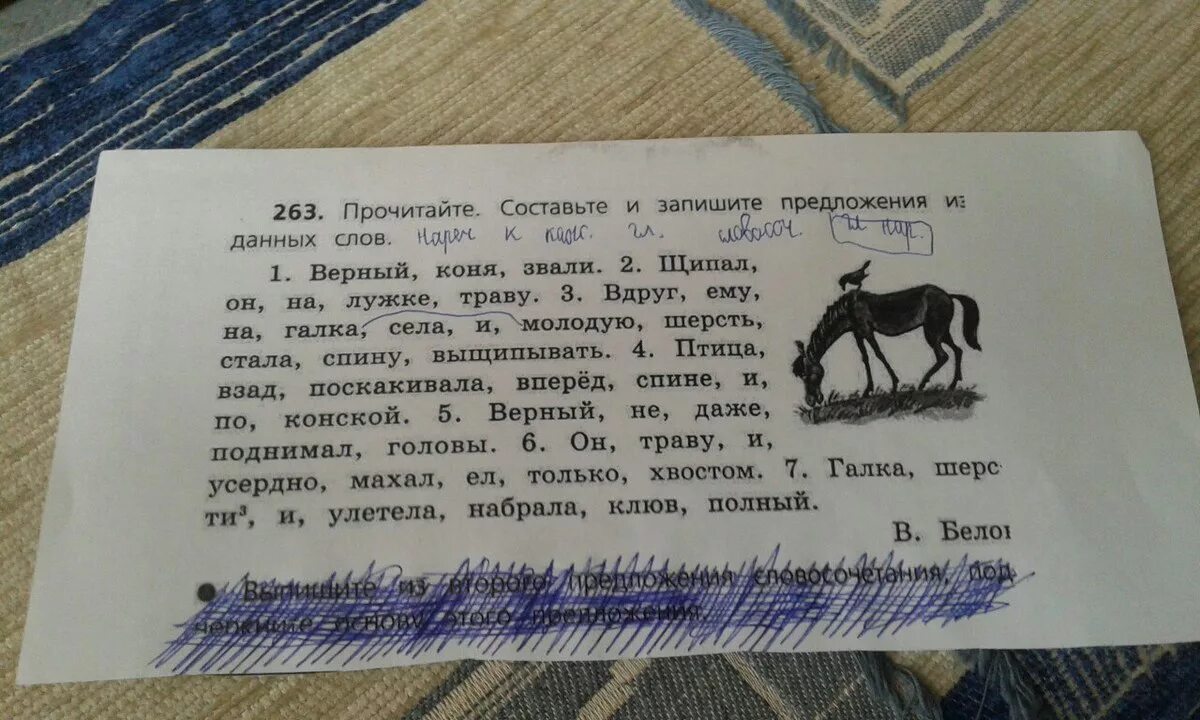 263. Прочитайте. Составьте и запишите предложения из
данных слов. нареч к каж. гл. словосоч. гл нар.
1. Верный, коня, звали. 2. Щипал,
он, на, лужке, траву. 3. Вдруг, ему,
на, галка, села, и, молодую, шерсть,
стала, спину, выщипывать. 4. Птица,
взад, поскакивала, вперёд, спине, и,
по, конской. 5. Верный, не, даже,
поднимал, головы. 6. Он, траву, и,
усердно, махал, ел, только, хвостом. 7. Галка, шерс-
ти³, и, улетела, набрала, клюв, полный.
В. Белов
• Выпишите из второго предложения словосочетания, под-
черкните основу этого предложения.